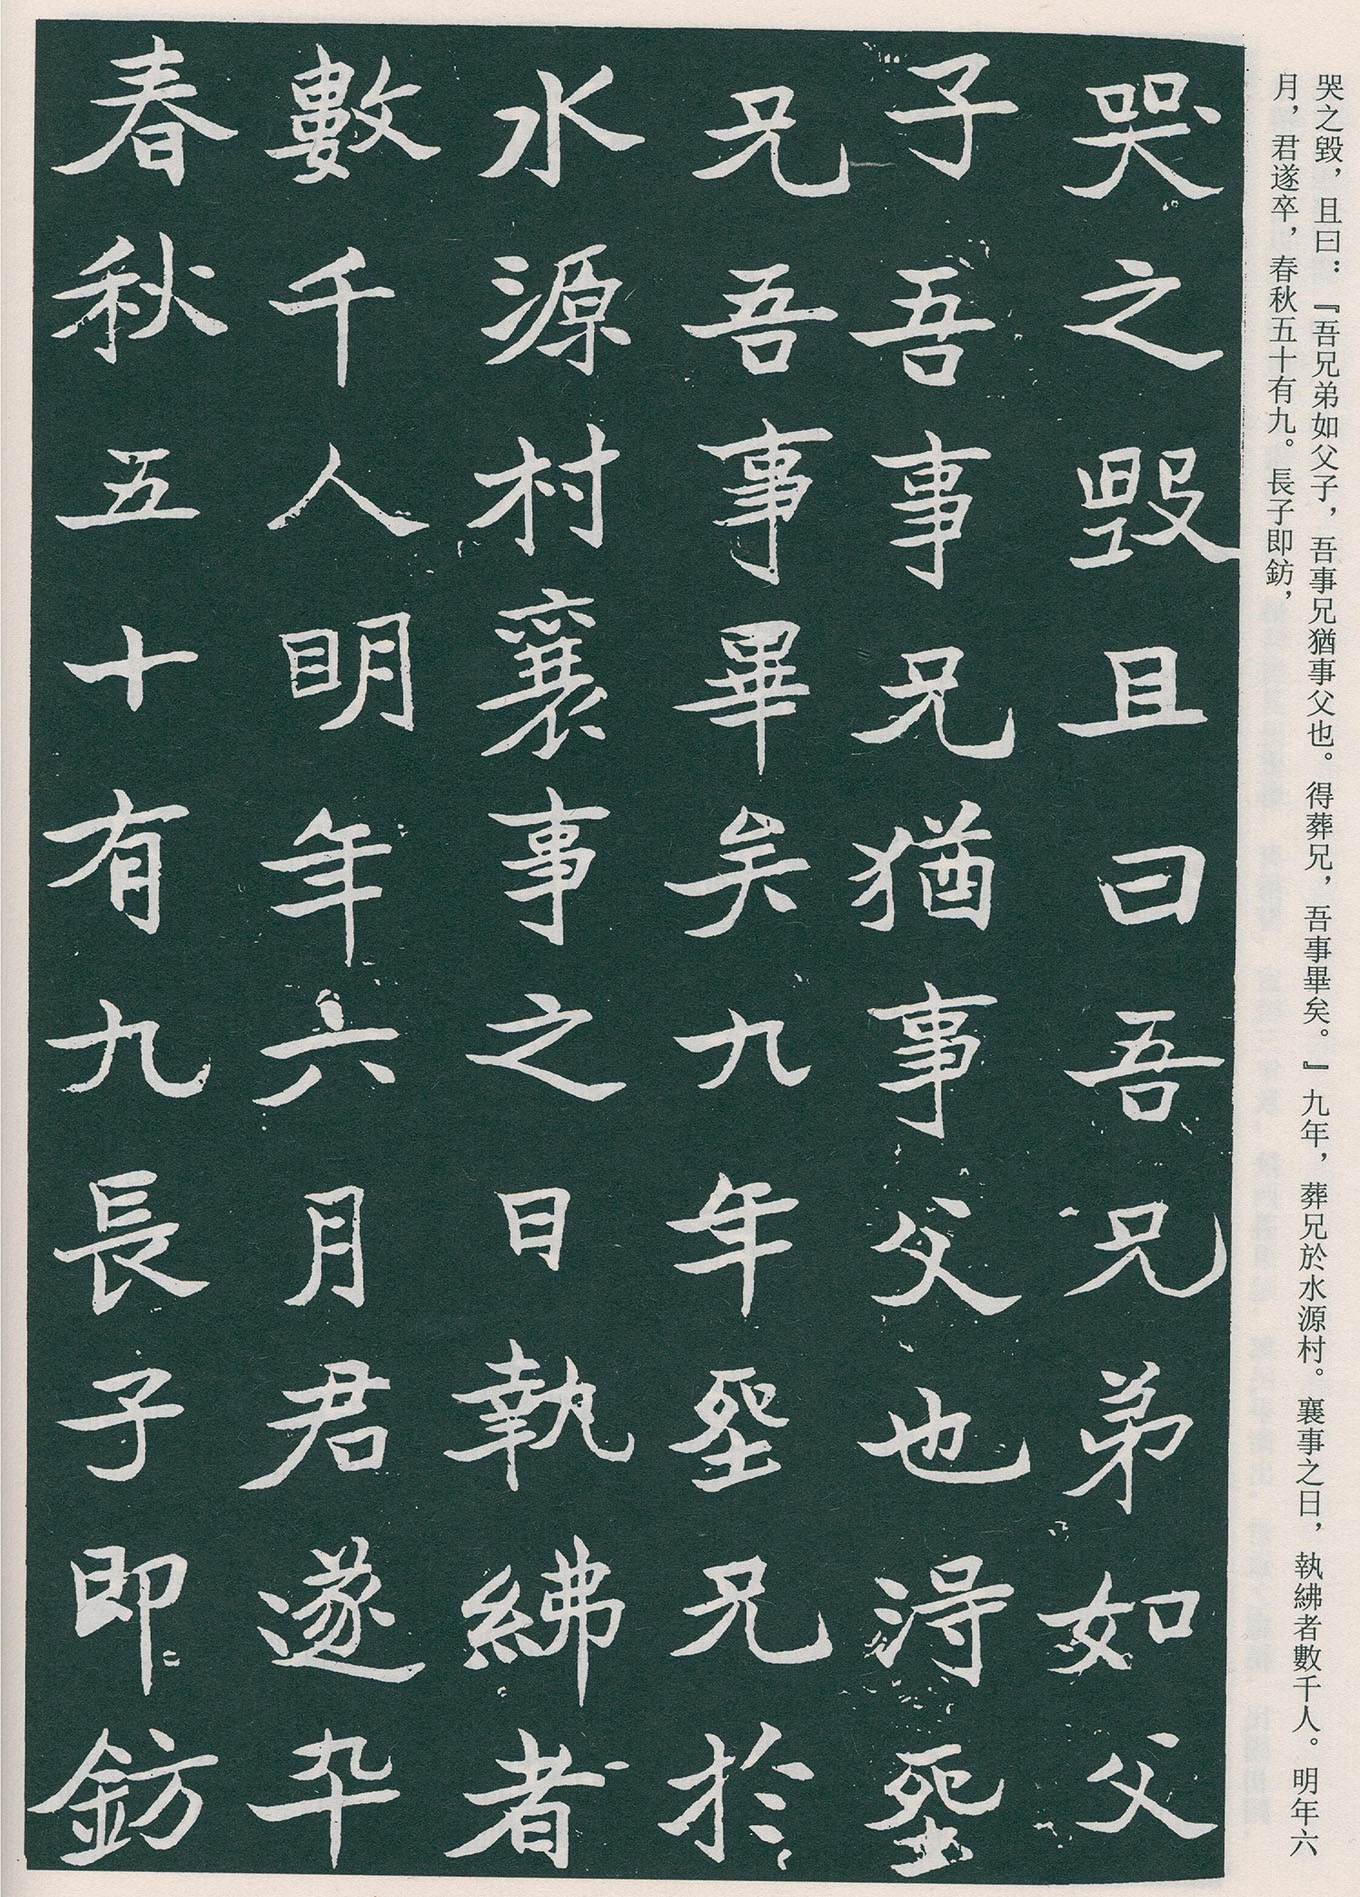 哭之毀，且曰：『吾兄弟如父子，吾事兄猶事父也。得葬兄，吾事畢矣。』九年，葬兄於水源村。襄事之日，執紼者數千人。明年六
月，君遂卒，春秋五十有九。長子即鈁，
哭之毀且曰吾兄弟如父
子吾事兄猶事父也淂塟
兄吾事畢矣九年塟兄於
水源村襄事之日執紼者
數千人明年六月君遂卒
春秋五十有九長子即鈁